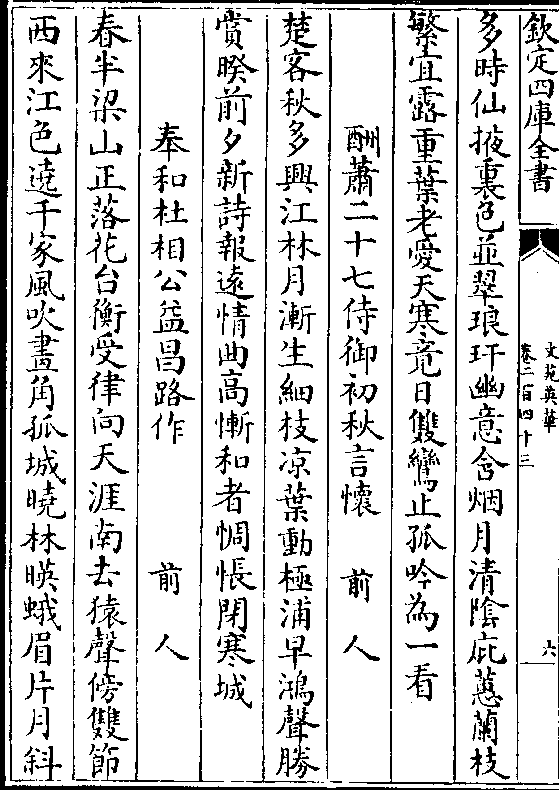 欽定四庫全書
文苑英華
卷二百四十三
六
多時仙掖裏色並翠琅玕幽意含烟月清隂庇蕙蘭枝
繁宜露重葉老愛天寒竟日雙鸞止孤吟為一看
酬蕭二十七侍御初秋言懷 前人
楚客秋多興江林月漸生細枝凉葉動極浦早鴻聲勝
賞睽前夕新詩報逺情曲高慚和者惆悵閉寒城
奉和杜相公益昌路作 前人
春半梁山正落花台衡受律向天涯南去猿聲傍雙節
西來江色遶千家風吹畫角孤城曉林暎蛾眉片月斜